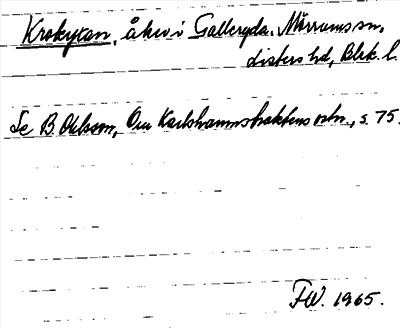 Krokytan, åker i Galleryda. Mörrums sn,
Listers hd, Blek. l.
Se B. Ohlsson, Om Karlshamnstraktens ortn., s. 75.
FW. 1965.